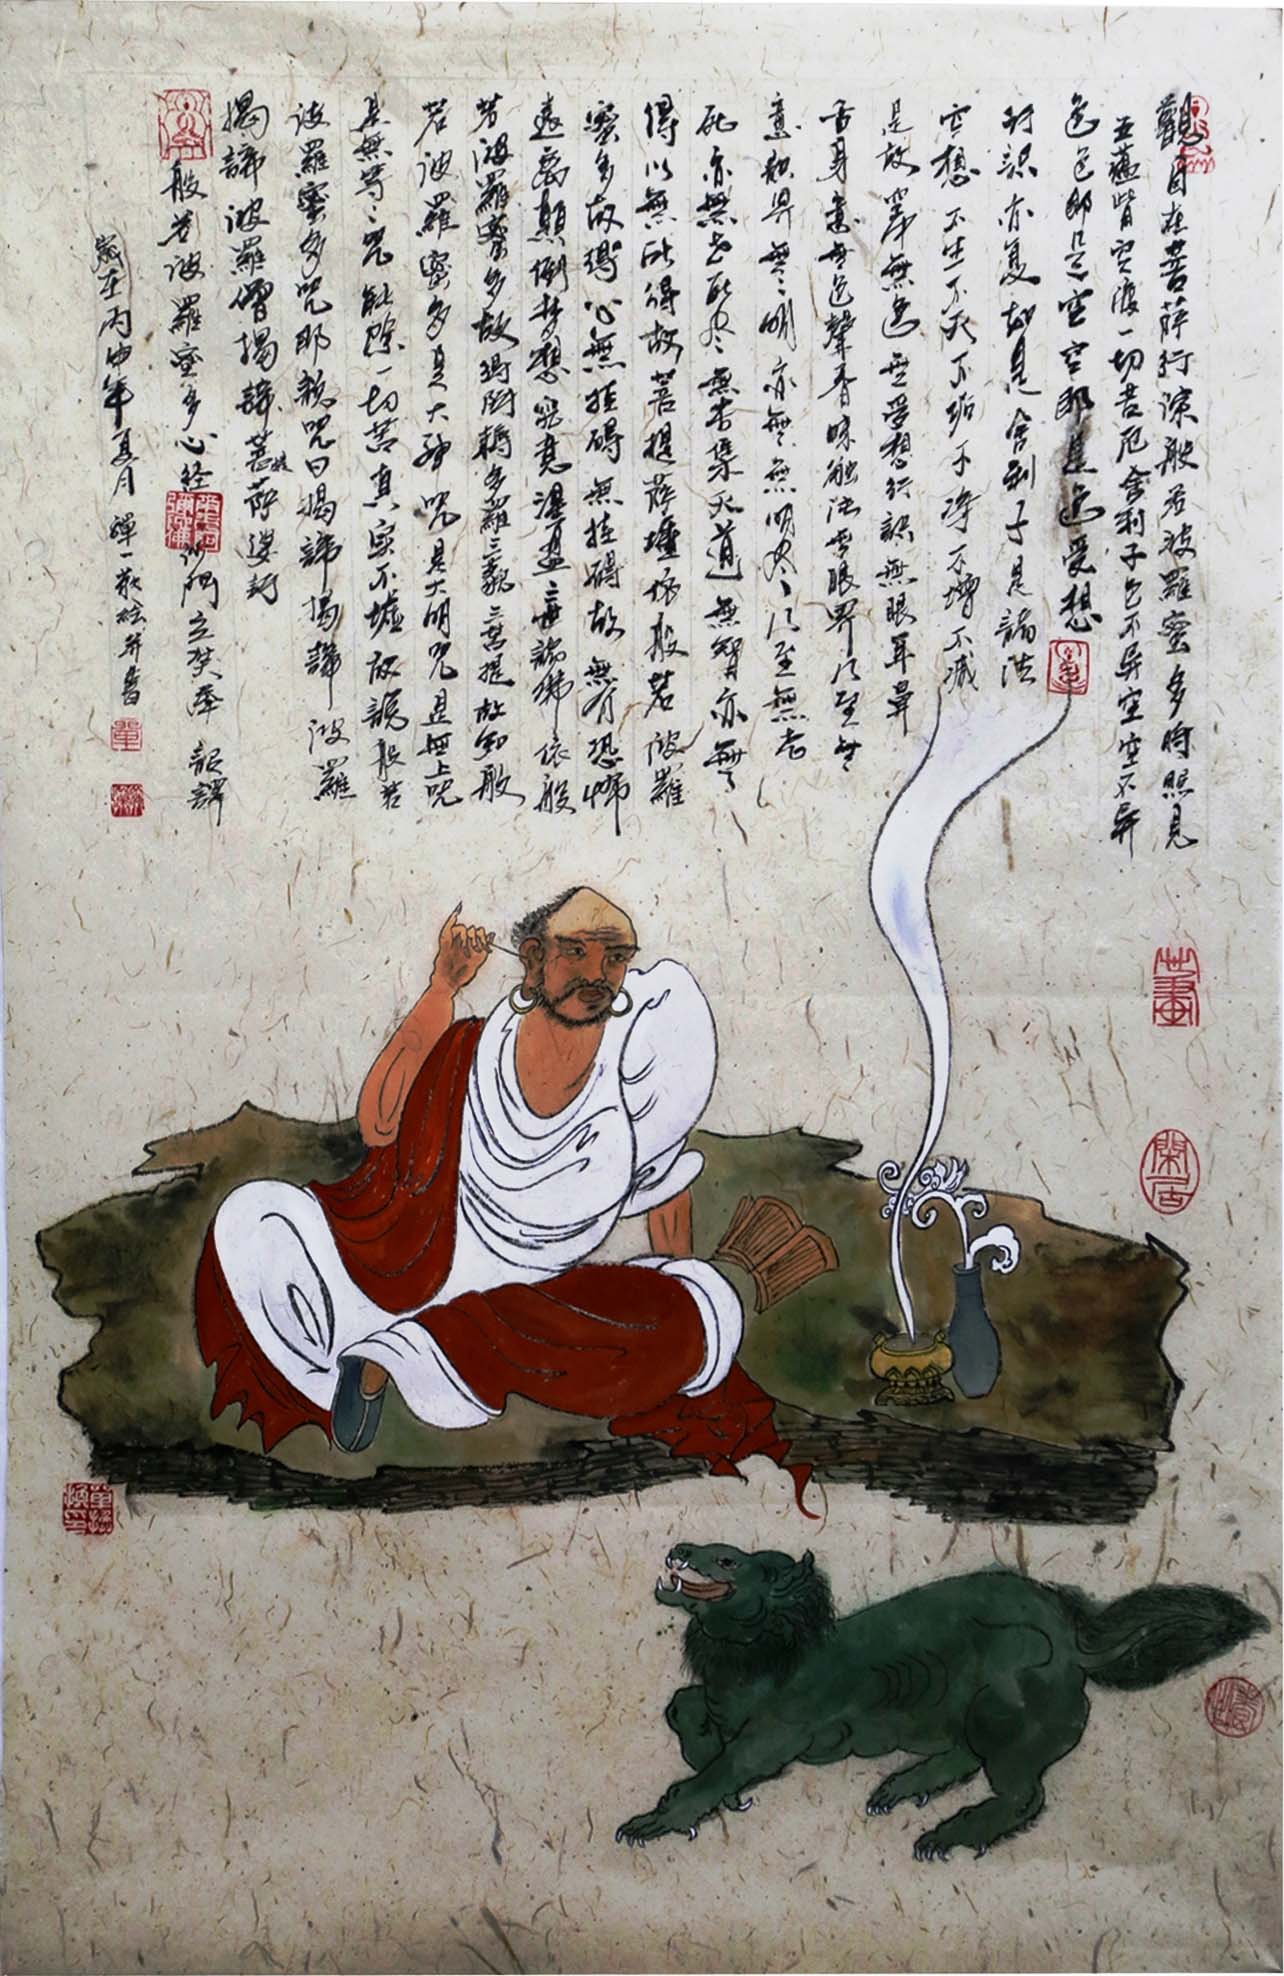 觀自在菩薩行深般若波羅蜜多時照見
五蘊皆空度一切苦厄舍利子色不异空空不异
色色即是空空即是色受想
行識亦复如是舍利子是諸法
空想不生不灭不垢不净不增不减
是故空中無色無受想行識無眼耳鼻
舌身意無色聲香味触法無眼界乃至無
意識界無無明亦無無明尽乃至無老
死亦無老死尽無苦集灭道無智亦無
得以無所得故菩提薩埵依般若波羅
蜜多故得心無挂碍無挂碍故無有恐怖
遠离顛倒梦想究竟涅盘三世諸佛依般
若波羅蜜多故得阿耨多羅三藐三菩提故知般
若波羅蜜多是大神咒是大明咒是無上咒
是無等等咒能除一切苦真实不墟故說般若
波羅蜜多咒即說咒曰揭諦揭諦波羅
揭諦波羅僧揭諦菩提薩婆訶
般若波羅蜜多心经沙門玄奘奉詔譯
嵗在丙申年夏月禪一敬绘并書
閑居